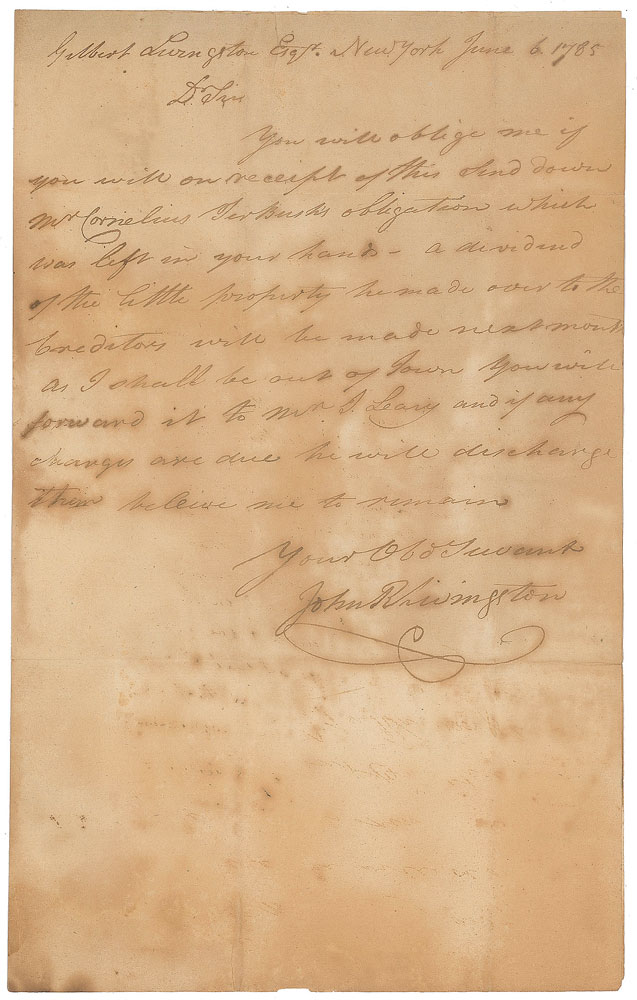 Gilbert Livingston Esqr. New York June 6. 1785
Dr Sir
You will oblige me if
you will on receipt of this send down
Mr Cornelius TerBushs obligation which
was left in your hands - a dividend
of the little property he made over to the
Creditors will be made next month
as I shall be out of Town you will
forward it to Mr J. Leary and if any
charges are due he will discharge
them beleive me to remain
Your Obd Servant
John R Livingston